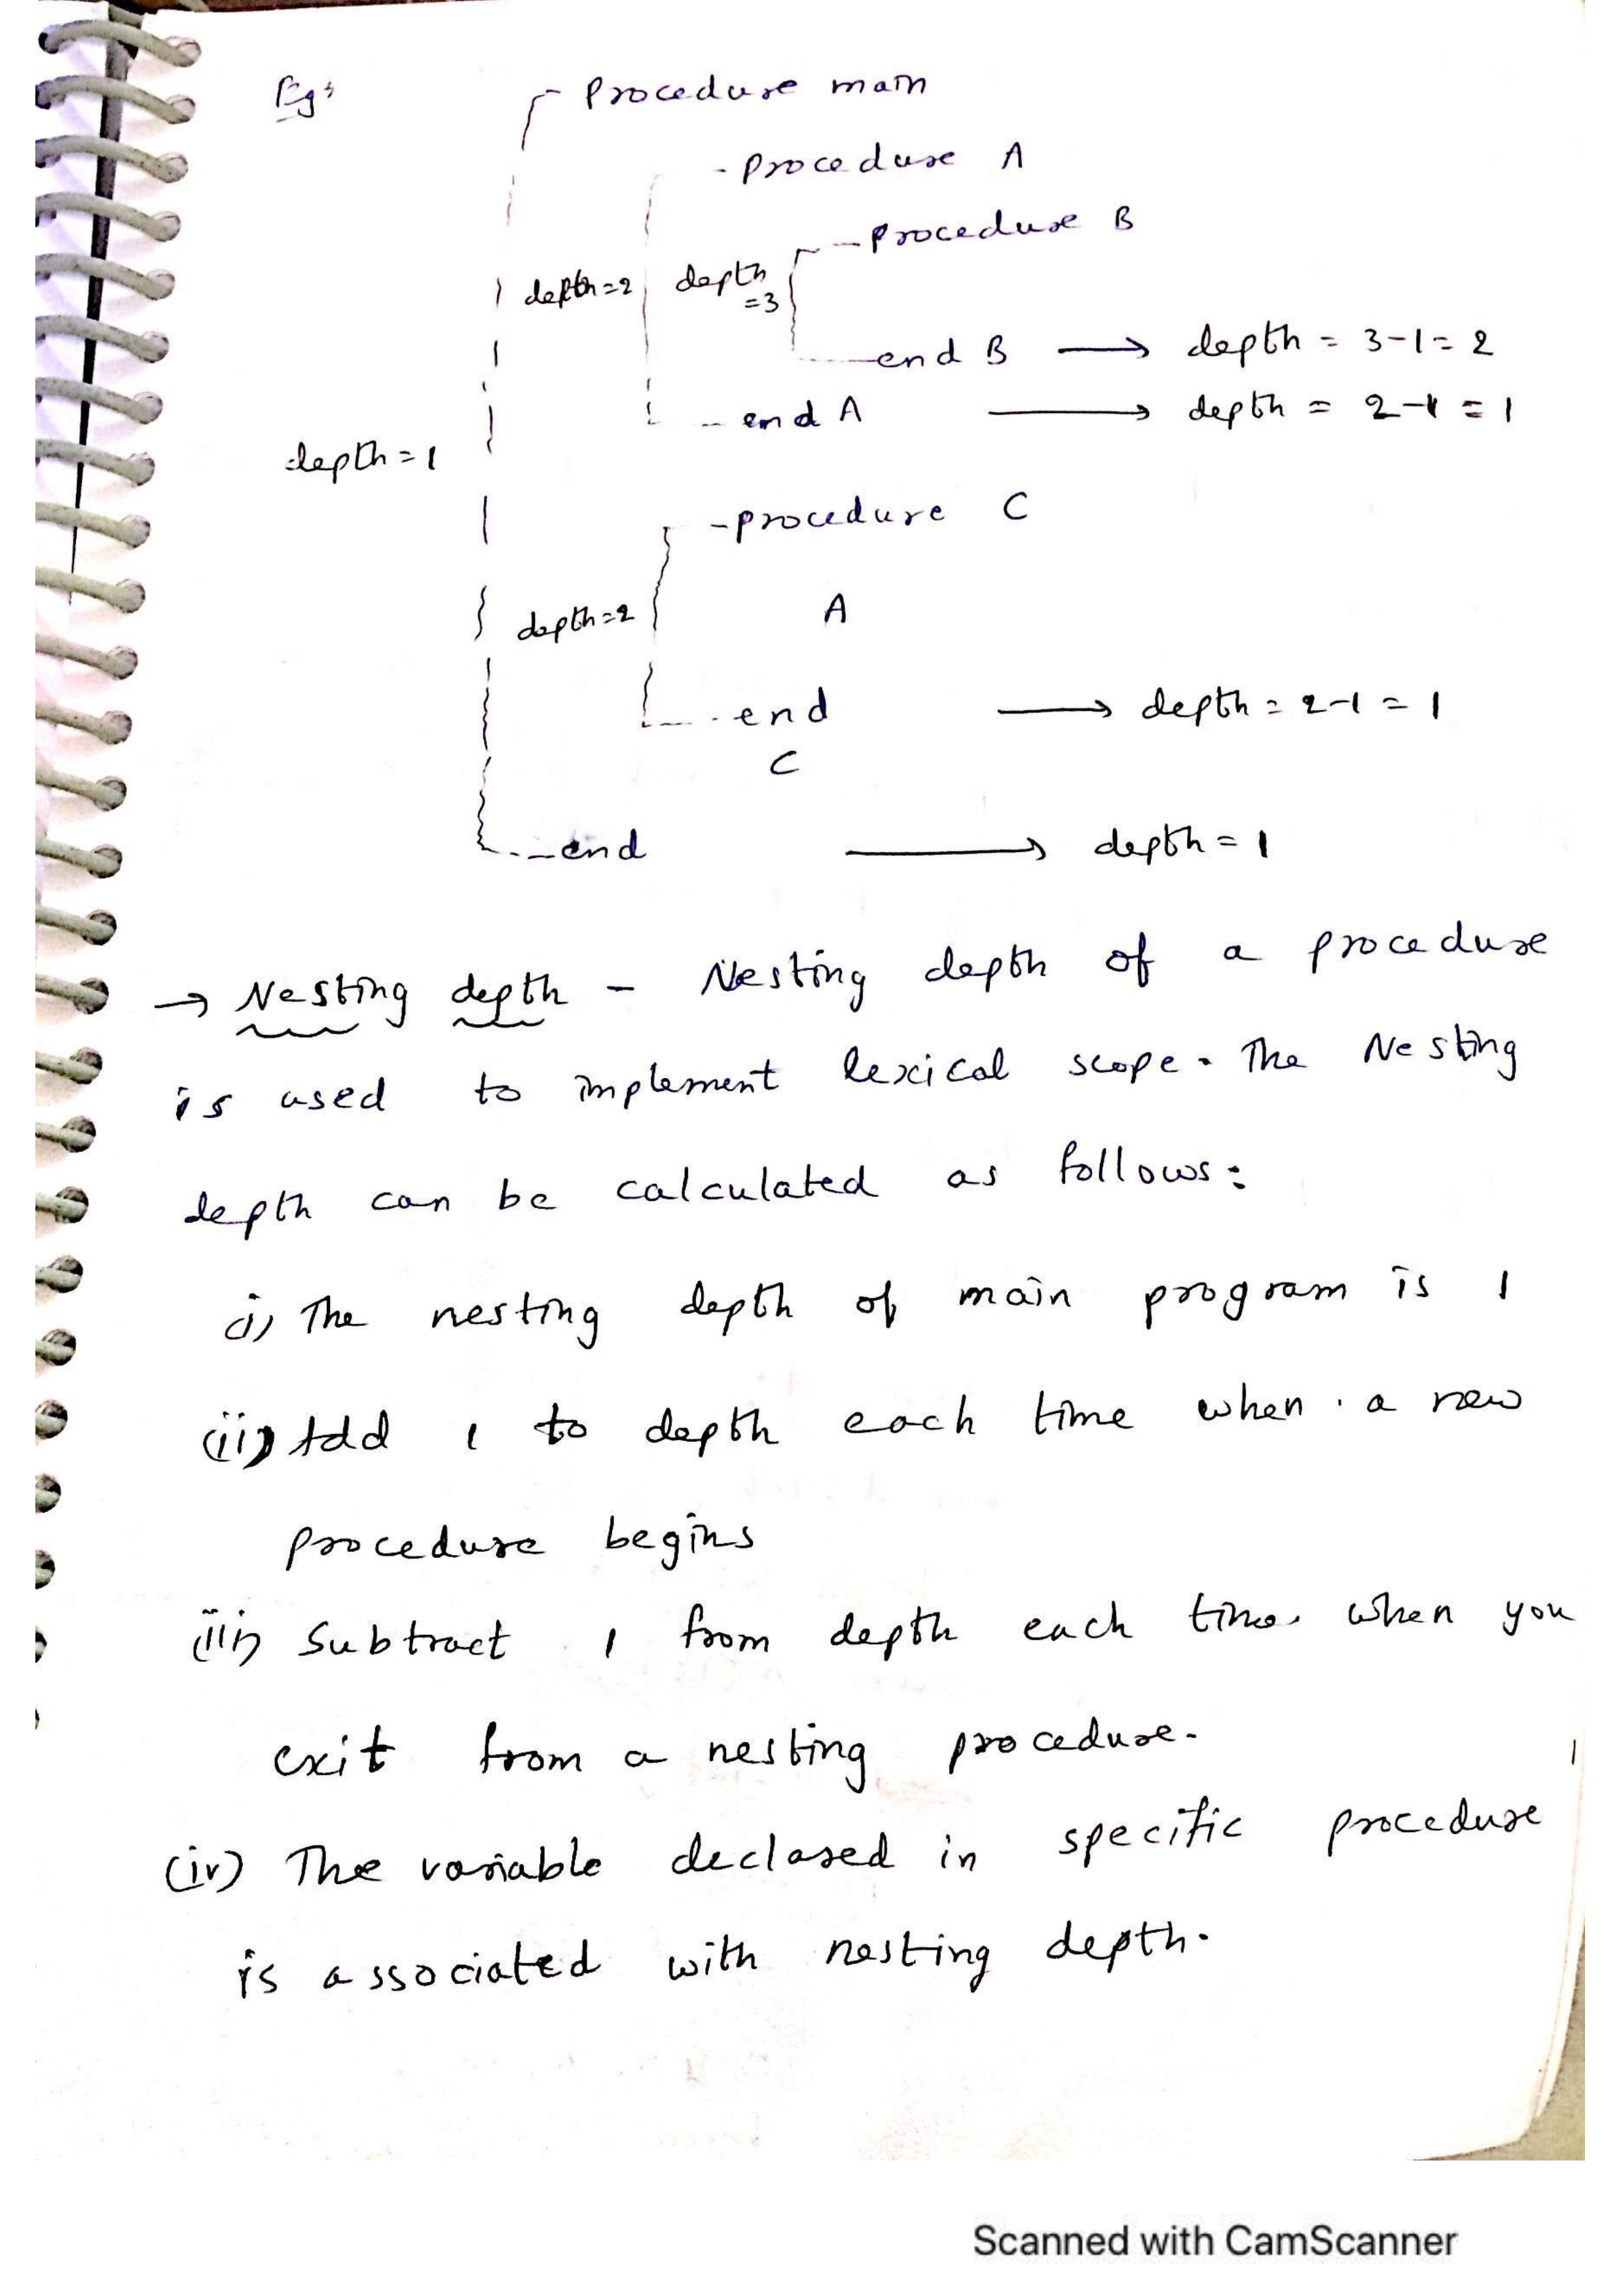 Eg:
Procedure main
- procedure A
- procedure B
depth=2 depth
=3
end B → depth = 3-1= 2
end A → depth = 2-1 = 1
depth = 1
- procedure C
A
depth=2
end → depth = 2-1 = 1
C
end → depth = 1
→ Nesting depth - Nesting depth of a procedure
is used to implement lexical scope. The Nesting
depth can be calculated as follows:
i) The nesting depth of main program is 1
(ii) Add 1 to depth each time when a new
procedure begins
(iii) Subtract 1 from depth each time when you
exit from a nesting procedure.
(iv) The variable declared in specific procedure
is associated with nesting depth.
Scanned with CamScanner